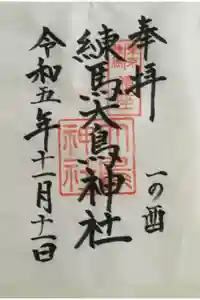 奉拝
一の酉
練馬大鳥神社
令和五年十一月十一日